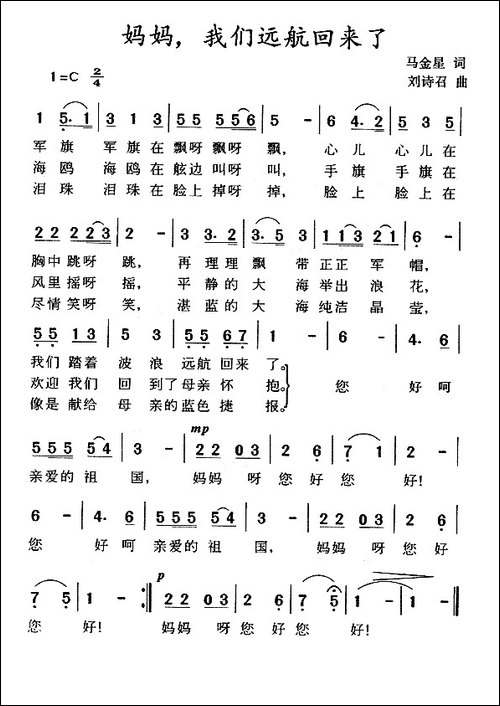 妈妈，我们远航回来了
马金星 词
1=C 2/4
刘诗召 曲
1 5·1 | 3 1 3 | 55 55 | 55 56 | 5 - | 6 4·2 | 5 3 5 |
军旗 军旗在飘呀飘呀 飘， 心儿 心儿在
海鸥 海鸥在舷边叫呀 叫， 手旗 手旗在
泪珠 泪珠在脸上掉呀 掉， 脸上 脸上在
22 22 3 | 2 - | 3 3·2 | 3·5 3 | 11 3 3 | 2 21 | 6 - |
胸中跳呀 跳， 再理理飘 带正正 军 帽，
风里摇呀 摇， 平静的大 海举出 浪 花，
尽情笑呀 笑， 湛蓝的大 海纯洁 晶 莹，
55 13 | 5 53 | 55 67 | 1 - | 1 - | 6 - | 4· 6 |
我们踏着 波浪 远航回来 了。
欢迎我们 回到了母亲怀 抱。 您 好呵
像是献给 母亲的蓝色捷 报。
mp
555 54 | 3 - | 22 03 | 2 6 | 7 1 | 2 - |
亲爱的祖 国， 妈妈 呀您好您 好！
6 - | 4· 6 | 555 54 | 3 - | 3 - | 22 03 | 2 6 |
您 好呵 亲爱的祖 国， 妈妈 呀您好
p
7 5 | 1 - :| 22 03 | 2 6 | 7 5 | 1 - | 1 - ‖
您 好！ 妈妈 呀您好您 好！